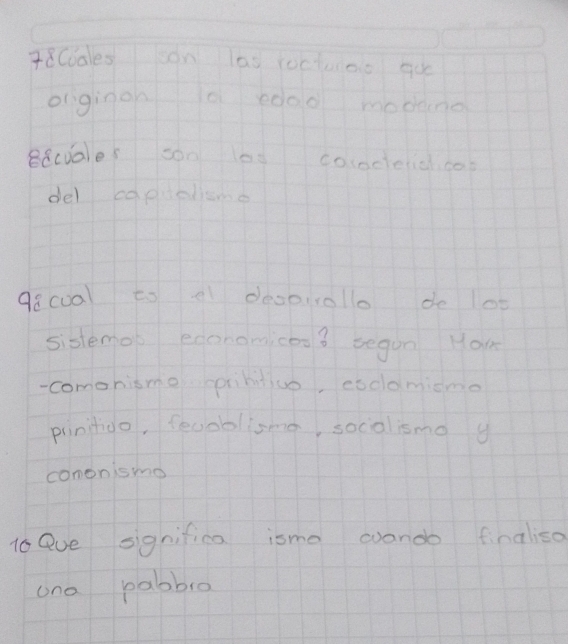 7¿Cúales son las rocturas que
originan la edad moderna
8¿cuales son las caracteristicas
del capitalismo
9¿cual es el desarrollo de los
sistemas economicos? segun Marx
-comonismo primitivo, esclamismo
primitivo, feudoblismo, socialismo y
comonismo
10 Que significa ismo cuando finalisa
una palabra